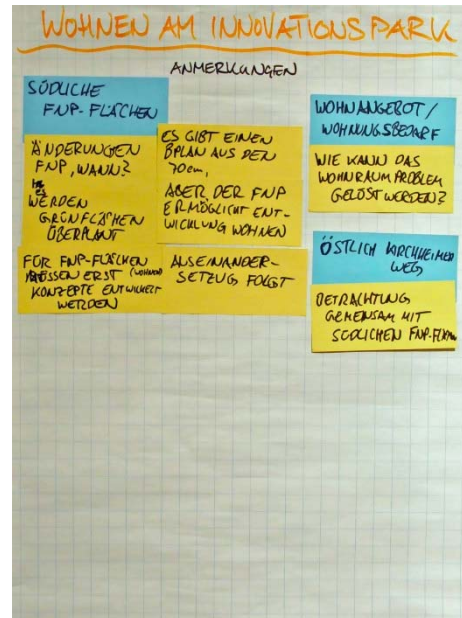 WOHNEN AM INNOVATIONSPARK
ANMERKUNGEN
SÜDLICHE
FNP-FLÄCHEN
ÄNDERUNGEN
FNP, WANN?
ES
WERDEN
GRÜNFLÄCHEN
ÜBERPLANT
FÜR FNP-FLÄCHEN
MÜSSEN ERST (WOHNEN)
KONZEPTE ENTWICKELT
WERDEN
ES GIBT EINEN
BPLAN AUS DEN
70ern,
ABER DER FNP
ERMÖGLICHT ENT-
WICKLUNG WOHNEN
AUSEINANDER-
SETZUG FOLGT
WOHNANGEBOT/
WOHNUNGSBEDARF
WIE KANN DAS
WOHNRAUMPROBLEM
GELÖST WERDEN?
ÖSTLICH KIRCHHEIMER
WEG
BETRACHTUNG
GEMEINSAM MIT
SÜDLICHEN FNP-FLÄCHEN